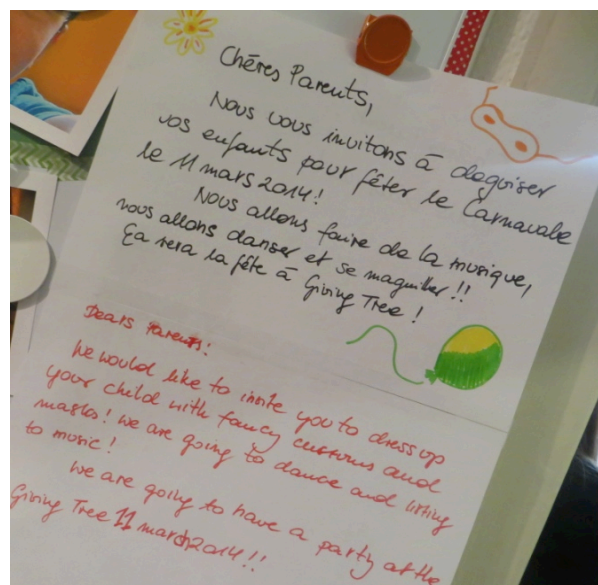 Chères Parents,
Nous vous invitons à deguiser
vos enfants pour fêter le Carnavale
le 11 mars 2014!
Nous allons faire de la musique,
nous allons danser et se maquiller!!
Ça sera la fête à Giving Tree!
Dears Parents:
We would like to invite you to dress up
your child with fancy customs and
masks! We are going to dance and litting
to music!
We are going to have a party at the
Giving Tree 11 march 2014!!